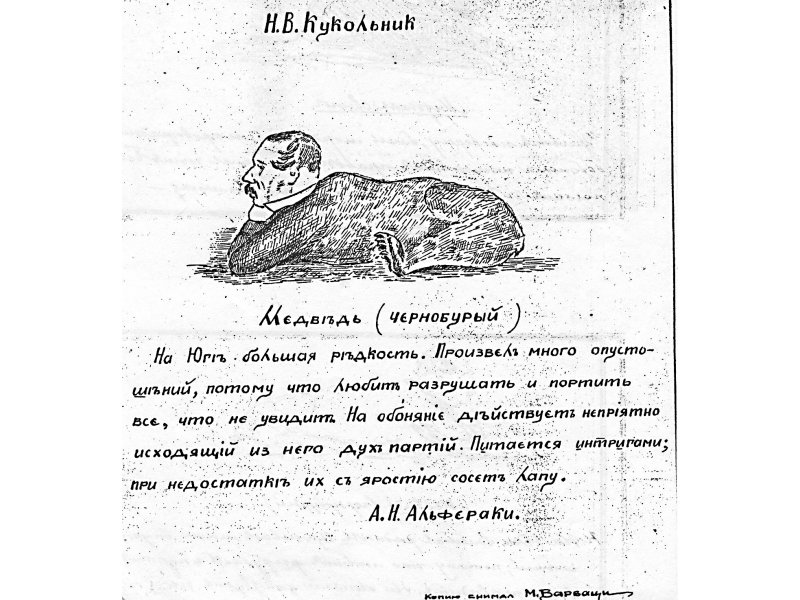 Н.В. Кукольник
Медвѣдь (чернобурый)
На Югѣ большая рѣдкость. Произвелъ много опусто-
шѣний, потому что любитъ разрушать и портить
все, что не увидитъ. На обоняніе дѣйствуетъ непріятно
исходящій из него духъ партій. Питается интригами;
при недостаткѣ их съ яростію сосетъ лапу.
А.Н. Альфераки.
Копию снимал М. Варваци